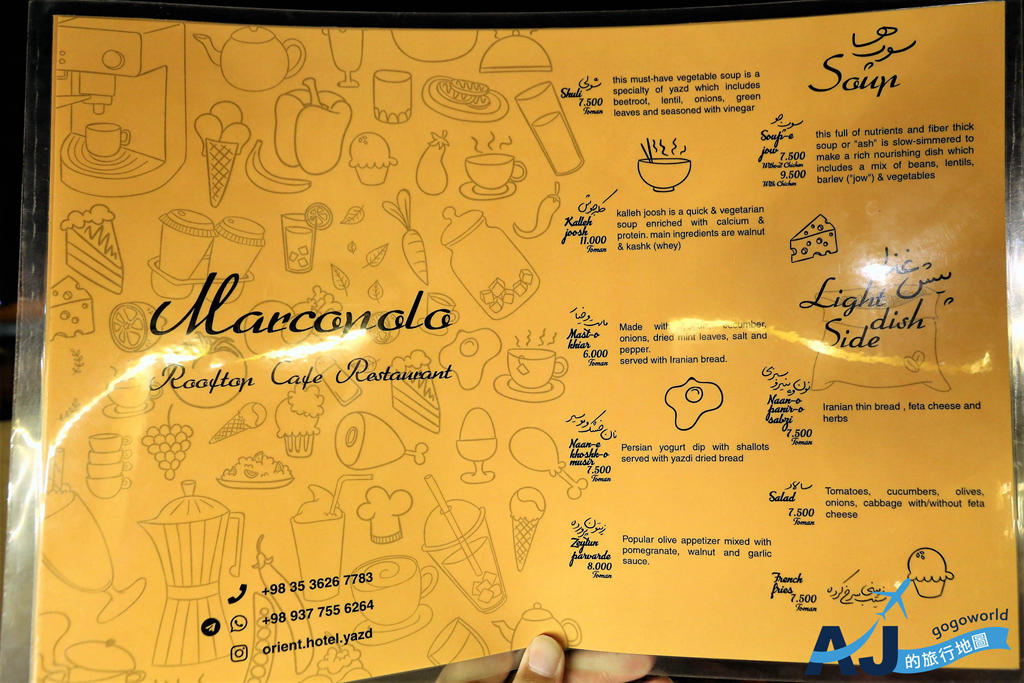 Marcopolo
Rooftop Cafe Restaurant
+98 35 3626 7783
+98 937 755 6264
orient.hotel.yazd
سوپ ها
Soup
شولی
Shuli
7.500
Toman
this must-have vegetable soup is a
specialty of yazd which includes
beetroot, lentil, onions, green
leaves and seasoned with vinegar
سوپ جو
Soup-e
jow
7.500
Without Chicken
9.500
With Chicken
this full of nutrients and fiber thick
soup or "ash" is slow-simmered to
make a rich nourishing dish which
includes a mix of beans, lentils,
barlev ("jow") & vegetables
Kalleh
joosh
11.000
Toman
kalleh joosh is a quick & vegetarian
soup enriched with calcium &
protein. main ingredients are walnut
& kashk (whey)
پیش غذا
Light
Side dish
ماست و خیار
Mast-o
khiar
6.000
Toman
Made with cucumber,
onions, dried mint leaves, salt and
pepper.
served with Iranian bread.
نون و پنیر و سبزی
Naan-o
panir-o
sabzi
7.500
Toman
Iranian thin bread , feta cheese and
herbs
نان خشک و موسیر
Naan-e
khoshk-o
musir
7.500
Toman
Persian yogurt dip with shallots
served with yazdi dried bread
سالاد
Salad
7.500
Toman
Tomatoes, cucumbers, olives,
onions, cabbage with/without feta
cheese
زیتون پرورده
Zeytun
parvarde
8.000
Toman
Popular olive appetizer mixed with
pomegranate, walnut and garlic
sauce.
French
fries
7.500
Toman
سیب زمینی سرخ کرده
AJ
gogoworld
的旅行地圖